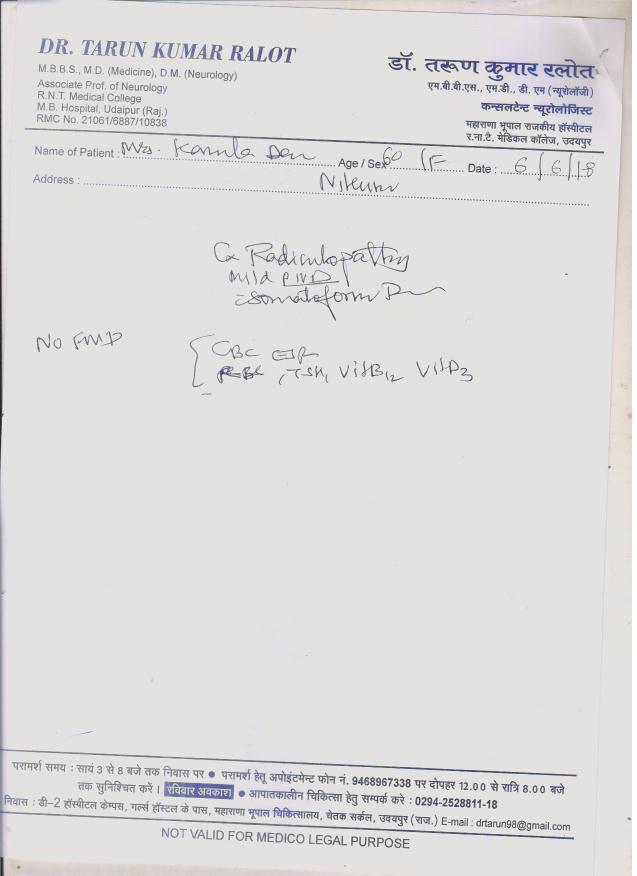 DR. TARUN KUMAR RALOT
M.B.B.S., M.D. (Medicine), D.M. (Neurology)
Associate Prof. of Neurology
R.N.T. Medical College
M.B. Hospital, Udaipur (Raj.)
RMC No. 21061/6887/10838
डॉ. तरूण कुमार रलोत
एम.बी.बी.एस., एम.डी., डी. एम (न्यूरोलॉजी)
कन्सलटेन्ट न्यूरोलोजिस्ट
महाराणा भूपाल राजकीय हॉस्पीटल
र.ना.टै. मेडिकल कॉलेज, उदयपुर
Name of Patient : Mrs. Kamla Age / Sex 60 / F Date : 6/6/18
Address :
Cx Radiculopathy
mild PIVD
Somatoform D
NO FMD
CBC ESR
, TSH, VitB12 VitD3
परामर्श समय : सायं 3 से 8 बजे तक निवास पर ● परामर्श हेतू अपोइंटमेन्ट फोन नं. 9468967338 पर दोपहर 12.00 से रात्रि 8.00 बजे
तक सुनिश्चित करें । रविवार अवकाश ● आपातकालीन चिकित्सा हेतु सम्पर्क करे : 0294-2528811-18
निवास : डी–2 हॉस्पीटल केम्पस, गर्ल्स हॉस्टल के पास, महाराणा भूपाल चिकित्सालय, चेतक सर्कल, उदयपुर (राज.) E-mail : drtarun98@gmail.com
NOT VALID FOR MEDICO LEGAL PURPOSE